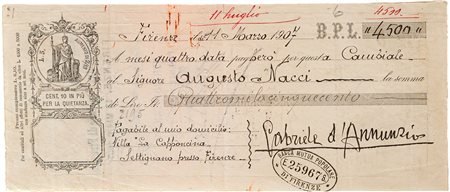 11 luglio
6
4500
Firenze li 11 Marzo 1907 B.P.L. "4500"
A mesi quattro data pagherò per questa Cambiale
al Signore Augusto Nacci la somma
di Lire It. Quattromilacinquecento
CENT. 10 IN PIÙ
PER LA QUIETANZA.
Pagabile al mio domicilio:
Villa La Capponcina
Settignano presso Firenze
Gabriele d'Annunzio
BANCA MUTUA POPOLARE
E 259676
DI FIRENZE